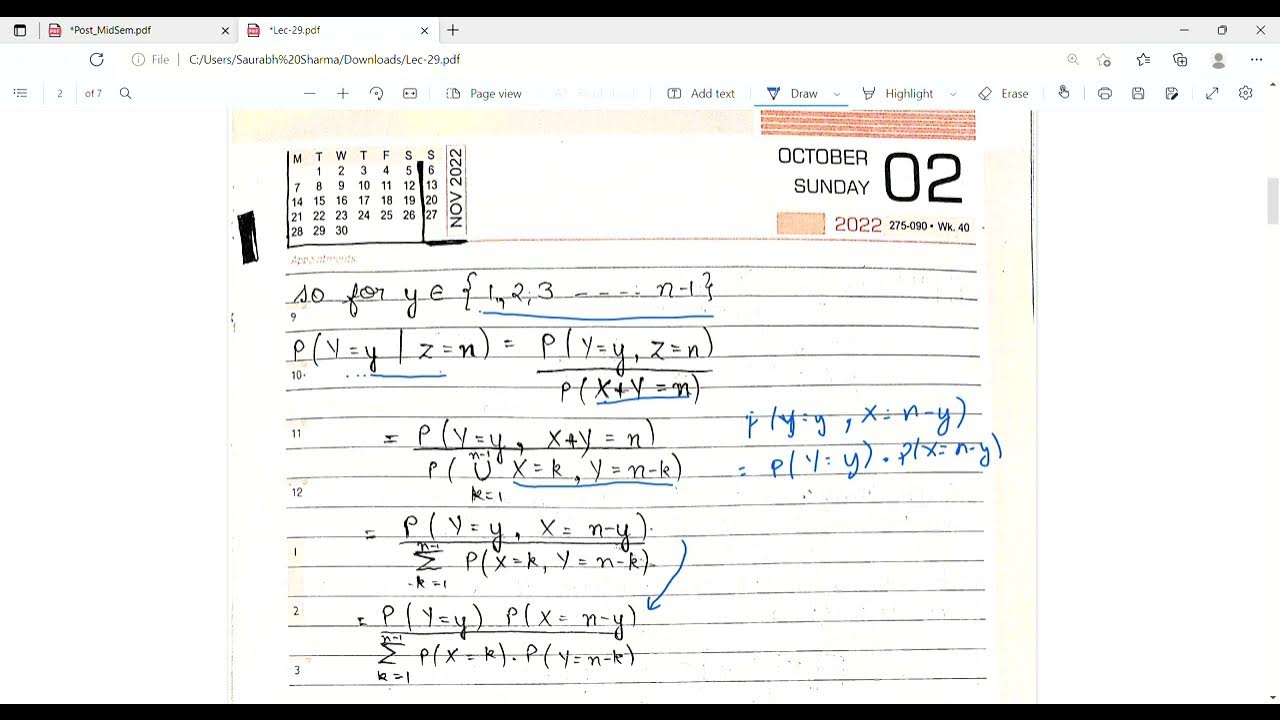 *Post_MidSem.pdf
*Lec-29.pdf
File C:/Users/Saurabh%20Sharma/Downloads/Lec-29.pdf
2 of 7 Page view Add text Draw Highlight Erase
M T W T F S S
1 2 3 4 5 6
7 8 9 10 11 12 13
14 15 16 17 18 19 20
21 22 23 24 25 26 27
28 29 30
NOV 2022
OCTOBER
SUNDAY
02
2022 275-090 • Wk. 40
Appointments
so for y ∈ {1, 2, 3 ----- n-1}
9
P(Y=y | Z=n) = P(Y=y, Z=n)
10
P(X+Y=n)
11
= P(Y=y, X+Y=n)
P(⋃_{k=1}^{n-1} X=k, Y=n-k)
12
P(Y=y, X=n-y)
= P(Y=y) . P(X=n-y)
= P(Y=y, X=n-y)
1
∑_{k=1}^{n-1} P(X=k, Y=n-k)
2
= P(Y=y) P(X=n-y)
3
∑_{k=1}^{n-1} P(X=k) . P(Y=n-k)